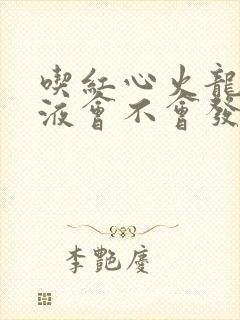 喫紅心火龍
液會不會發
李艷慶